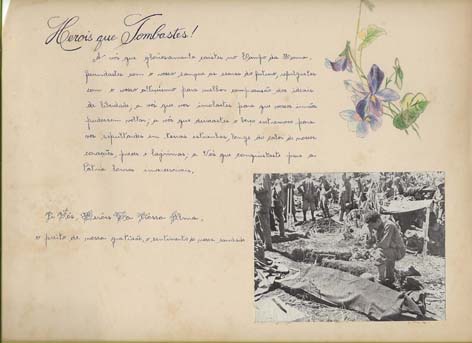 Herois que Tombastes!
A vós que gloriosamente caistes no Campo da Honra,
fecundastes com o vosso sangue as searas do futuro,
com o vosso altruismo para melhor compreensão dos ideais
de liberdade, a vós que vos imolastes para que vossos irmãos
pudessem voltar; a vós que deixastes o berço extremoso para
ser sepultados em terras estranhas, longe do calor de nossos
corações, preces e lágrimas, a Vós que conquistastes para a
Pátria louros imorredouros,
A Vós, Heróis Da Nossa Alma,
o preito de nossa gratidão, o sentimento de nossa saudade